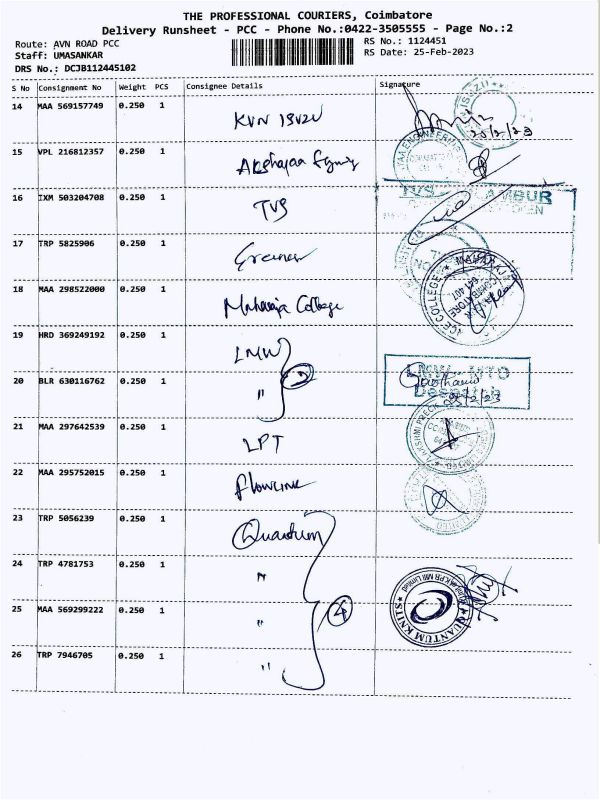 THE PROFESSIONAL COURIERS, Coimbatore
Delivery Runsheet - PCC - Phone No.:0422-3505555 - Page No.:2
Route: AVN ROAD PCC RS No.: 1124451
Staff: UMASANKAR RS Date: 25-Feb-2023
DRS No.: DCJB112445102
S No Consignment No Weight PCS Consignee Details Signature
14 MAA 569157749 0.250 1 KVN ISUZU
ISUZU
25/2/23
15 VPL 216812357 0.250 1 Akshajaa
16 IXM 503204708 0.250 1 TVS
TVS
17 TRP 5825906 0.250 1
18 MAA 298522000 0.250 1 Maharaja College
MAHARAJA
COLLEGE
COIMBATORE
641 407
19 HRD 369249192 0.250 1 LMW
20 BLR 630116762 0.250 1 "
2
LMW - MTO
Despatch
25/2/23
21 MAA 297642539 0.250 1 LPT
22 MAA 295752015 0.250 1 Flowlink
23 TRP 5056239 0.250 1 Quantum
24 TRP 4781753 0.250 1 "
25 MAA 569299222 0.250 1 "
4
QUANTUM KNITS
26 TRP 7946705 0.250 1 "